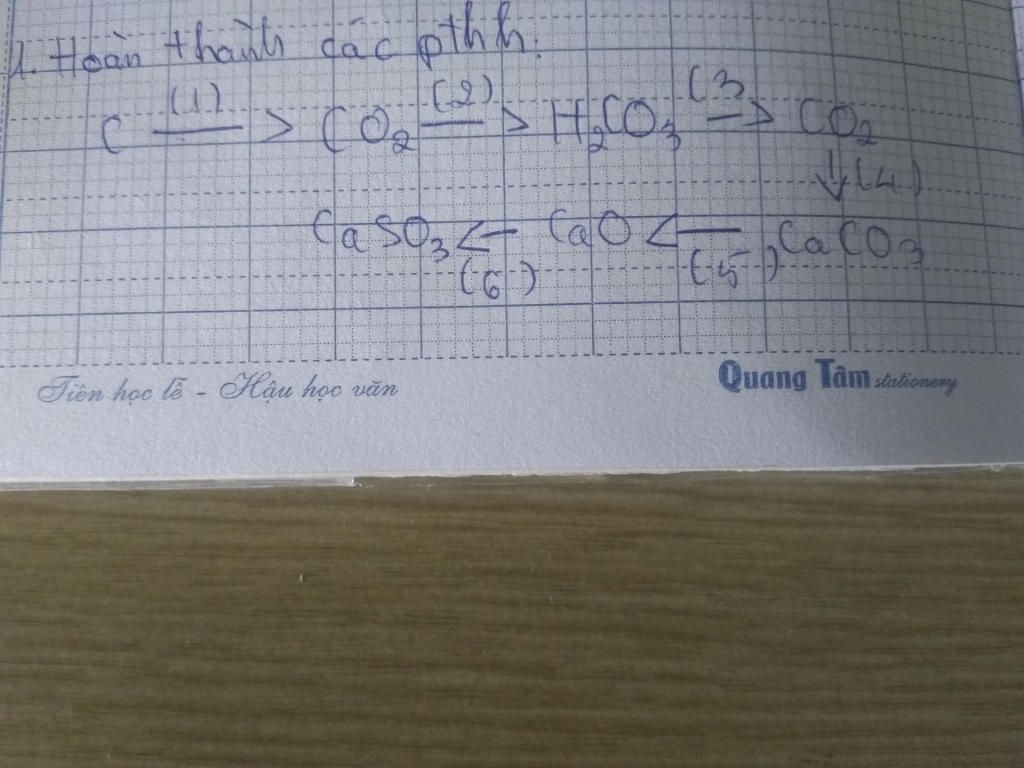 1. Hoàn thành các pthh:
C (1)⟶ CO₂ (2)⟶ H₂CO₃ (3⟶ CO₂
↓(4)
CaSO₃ ⟵(6) CaO ⟵(5) CaCO₃
Tiên học lễ - Hậu học văn
Quang Tâm stationery